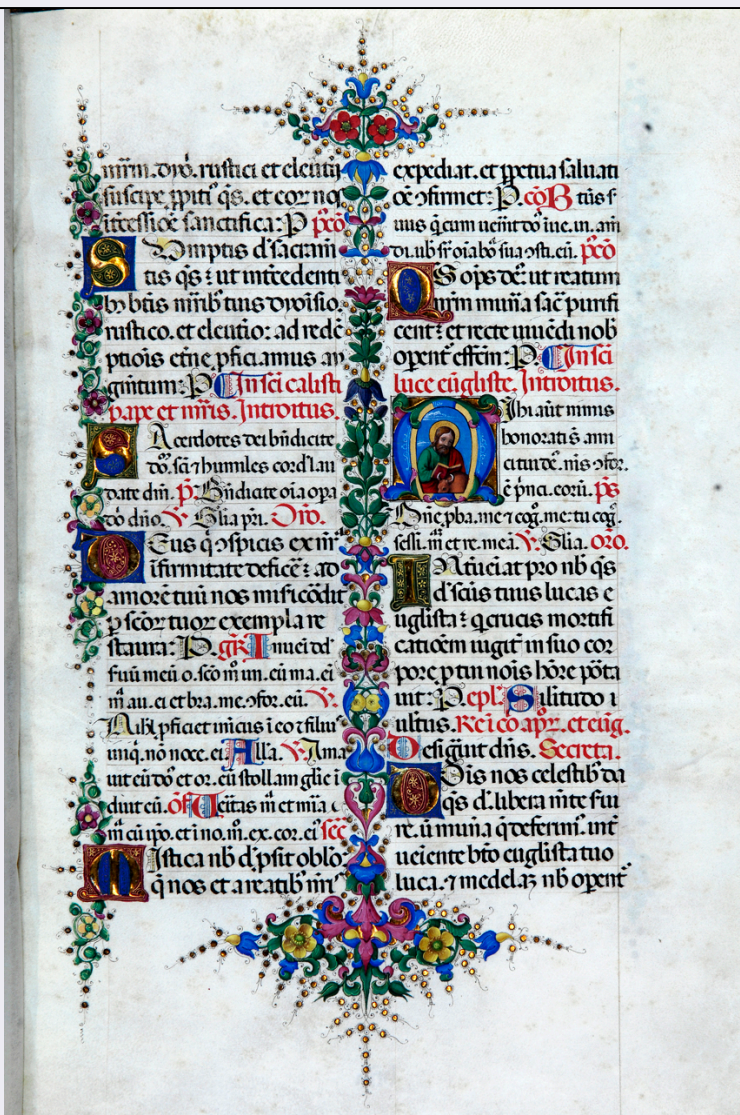 mr̄m. dyō. rustici et eleutij
suscipe ppiti⁹ qs. et cor nō
itcessiōe sanctifica: P pcō
Sumptis d' sacram̄
tis qs: ut intcedenti
b⁹ btis mr̄ib tuis dyoīsio.
rustico. et eleutio: ad redē
ptiōis etn̄e. pficiamus au
gm̄tum: P In sci calisti
pape et mr̄is. Introitus.
Sacerdotes dei bn̄dicite
dō. sc̄i ⁊ humiles cord' lau
date dm̄. p̄. Bn̄dicate oīa opa
dō dn̄o. V. Glia pri. Oro.
Deus q̄ ɔspicis ex nr̄
īfirmitate deficē: ad
amorē tuū nos mis̄icōdit
p scōr tuor exempla re
staura: P. gr̄. Inueī dd'
fuū meū o. scō m̄ un. eū ma. ei
m̄ au. ei et bra. me. ɔfor. eū. V.
Nihl pficiet īm̄icus ī eo ⁊ filius
iniq. nō noce. ei Alla. V. Ama
uit eū dō et or. eū stollam glie ī
duit eū. Of Ueitas m̄ et mīa
m̄ cū ipō. et ī no. m̄. ex. cor. ei⁹ sec
Mistica nb d' p̄sit oblō
q̄ nos et a reatib nr̄
expediat. et ppetua saluatī
ōe ɔfirmet: P. cō Btūs s'
uus q̄ cum uen̄it dō īue. un. am̄
dī. ub sr oīa bō sua ɔsti. eū. pcō
Qs op̄s dē: ut reatum
nr̄m mun̄a sac̄ purifi
cent: et recte uiuēdi nob
opent effcm̄: P In sci
luce eūgliste. Introitus.
Mihi aūt nimis
honorati s̄ ami
ci tui dē. nis ɔfor.
ē p̄nci. corū. ps
Dne pba. me ⁊ coḡ. me: tu coḡ.
sessi. m̄ et re. mea. V. Glia. oro.
Intueiat pro nb qs
d' sc̄us tuus lucas e
uglista: q̄ crucis mortifi
catiōem iugit̄ in suo cor
pore p tui nōis hōre pōta
uit: P. epl. Sīlitudo ī
ultus. Re. ī cō apr̄. et eūg.
Desiḡuit dn̄s. Secreta.
Dōis nos celestib da
qs d'. libera mēte fui
re. ū mun̄a q̄ defrim̄. int̄
ueiente bto euglista tuo
luca. ⁊ medelaꝫ nb opent̄